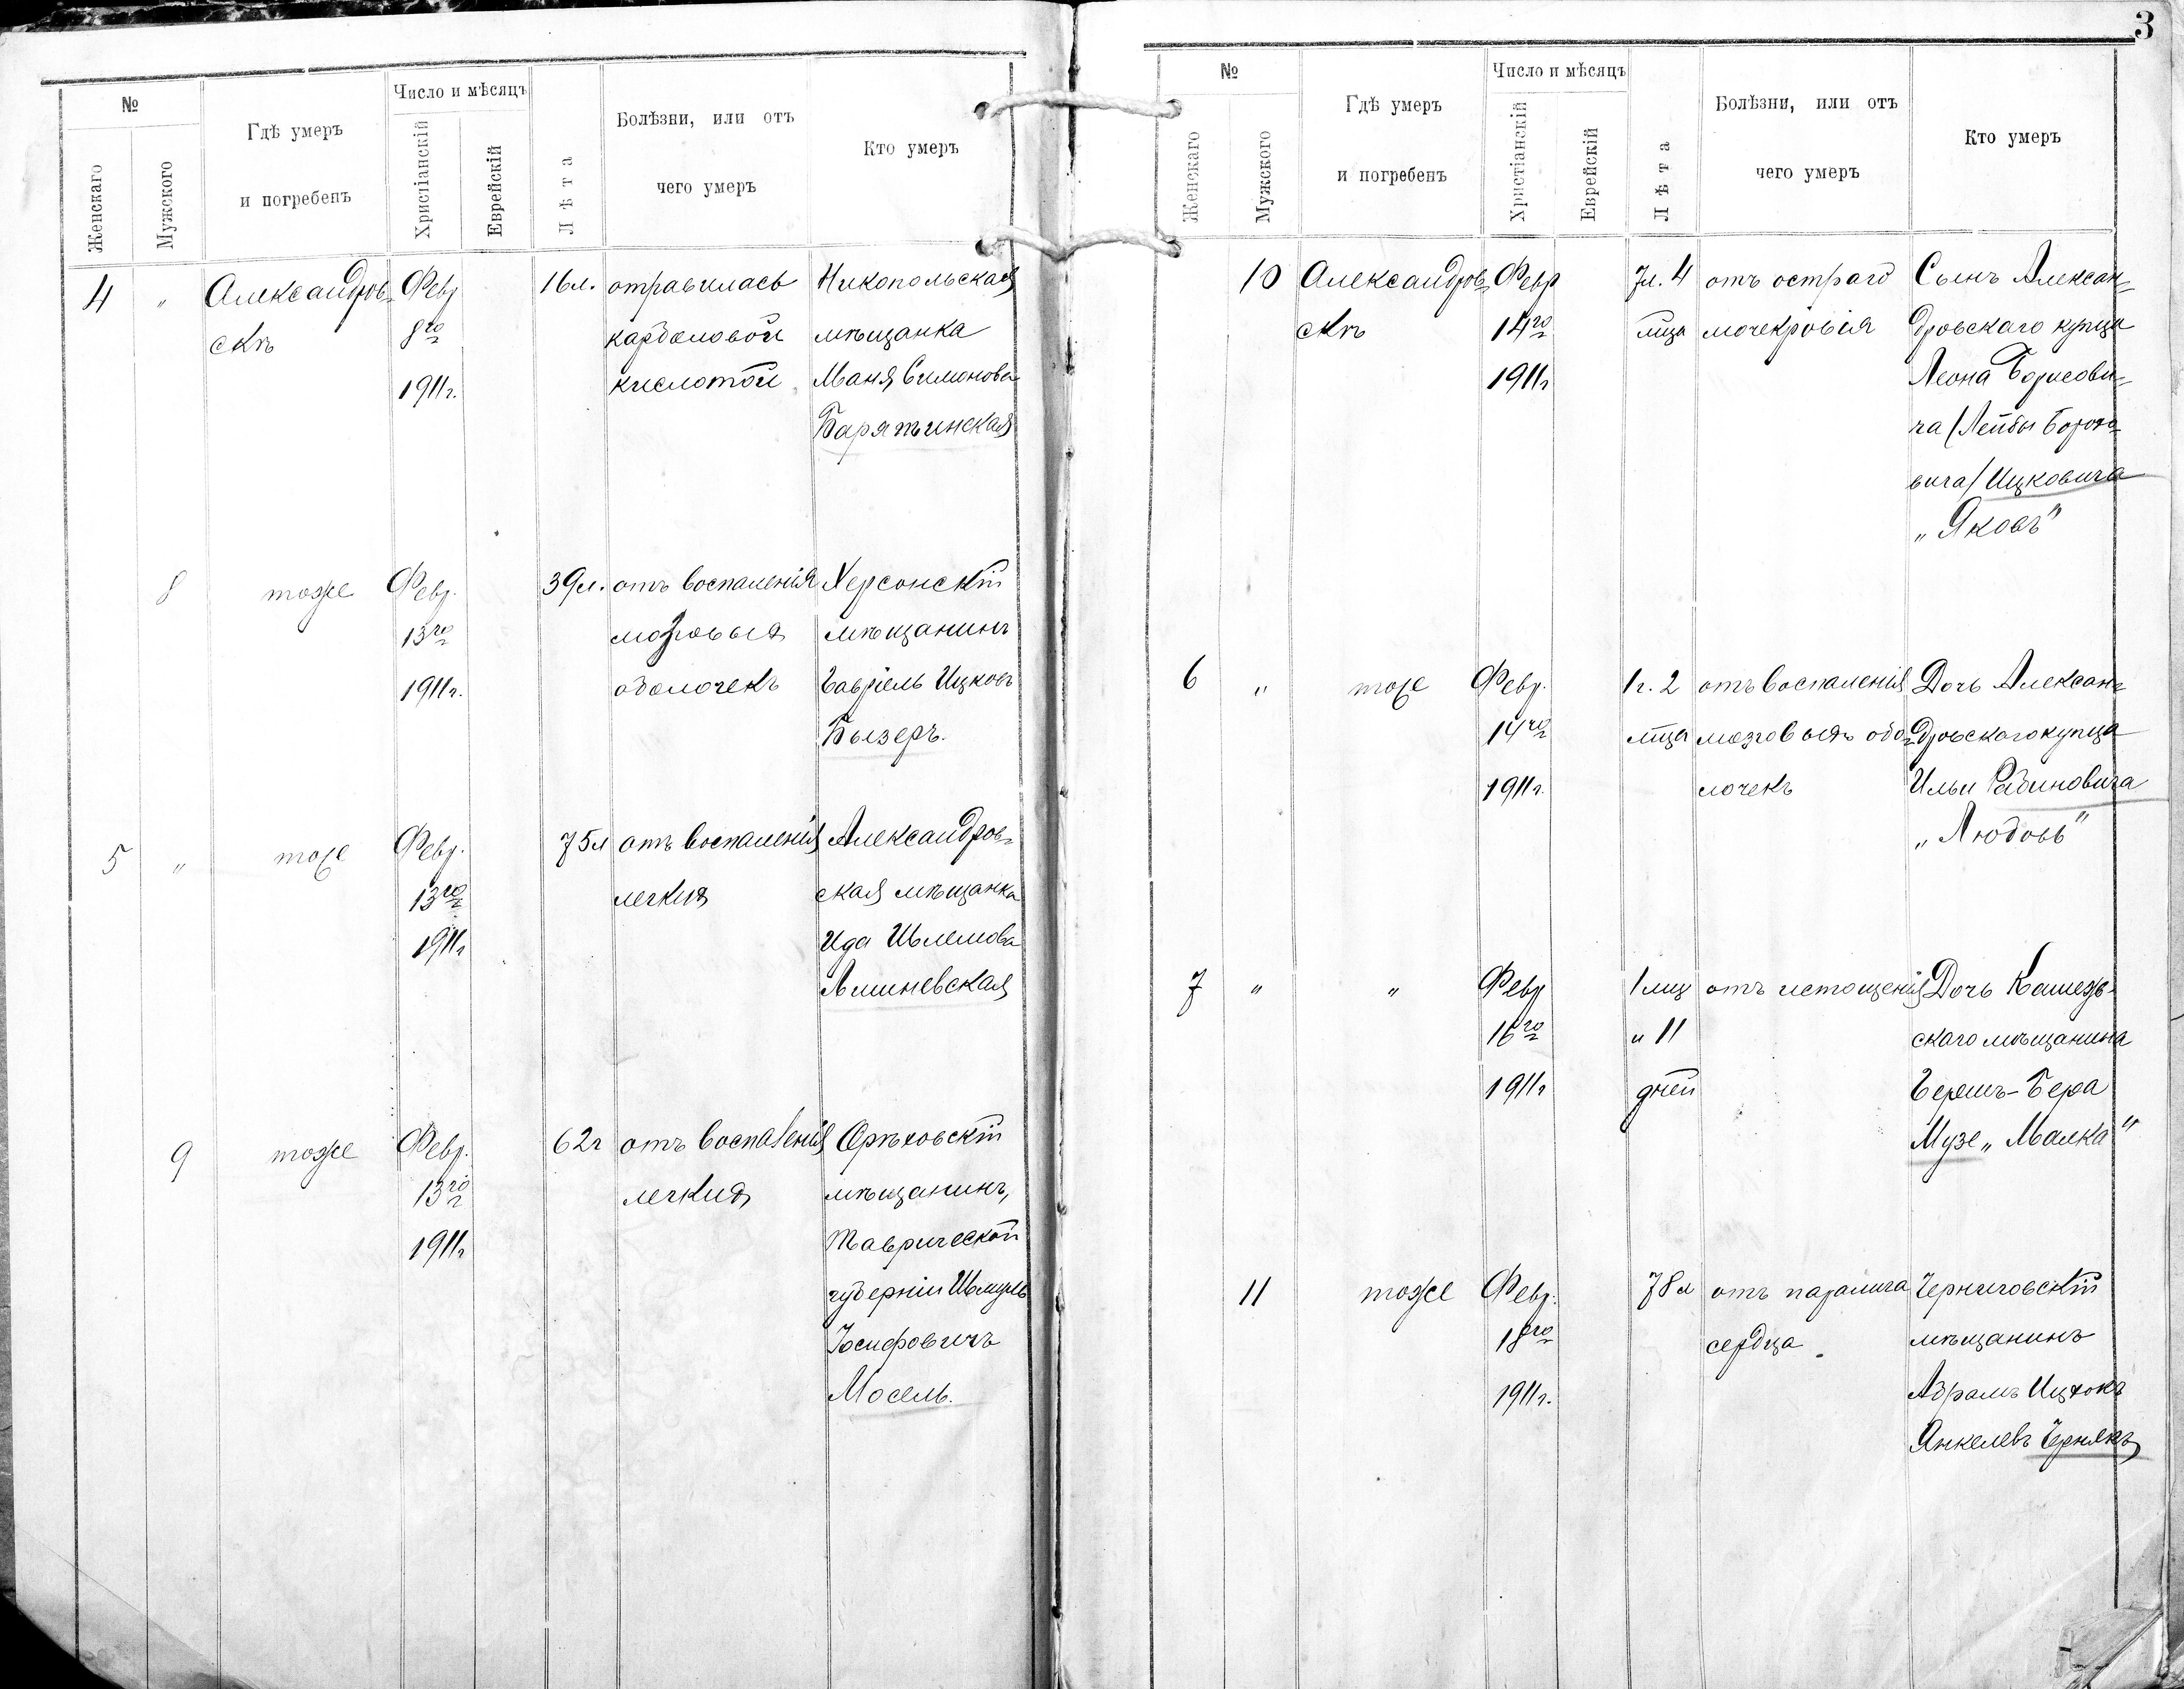 3
№
Женскаго
Мужского
Гдѣ умеръ
и погребенъ
Число и мѣсяцъ
Христіанскій
Еврейскій
Лѣта
Болѣзни, или отъ
чего умеръ
Кто умеръ
4 " Александров- Февр 16л. отравилась Никопольская
скъ 8го карболовой мѣщанка
1911г. кислотой Маня Симонова
Барятинская
8 тоже Февр. 39л. отъ воспаленія Херсонскій
13го мозговыхъ мѣщанинъ
1911г. оболочекъ Гавріель Ицковъ
Бызеръ.
5 " тоже Февр. 75л отъ воспаленія Александров-
13го легкихъ ская мѣщанка
1911г Ида Шлемова
Лишневская
9 тоже Февр. 62г отъ воспаленія Орѣховскій
13го легкихъ мѣщанинъ,
1911г Таврической
губерніи Шмуль
Іосифовичъ
Мосель.
№
Женскаго
Мужского
Гдѣ умеръ
и погребенъ
Число и мѣсяцъ
Христіанскій
Еврейскій
Лѣта
Болѣзни, или отъ
чего умеръ
Кто умеръ
10 Александров- Февр 7л. 4 отъ остраго Сынъ Алексан-
скъ 14го мца мочекровія дровскаго купца
1911г Леона Борисови-
ча (Лейбы Борохо-
вича) Ицковича
„Яковъ"
6 " тоже Февр. 1г. 2 отъ воспаленія Дочь Алексан-
14го мца мозговыхъ обо- дровскаго купца
1911г. лочекъ Ильи Рабиновича
„Любовь"
7 " " Февр 1 мцъ отъ истощенія Дочь
16го и 11 скаго мѣщанина
1911г дней Берешъ-Бера
Музе „Малка"
11 тоже Февр. 78л отъ паралича Черниговскій
18го сердца. мѣщанинъ
1911г. Абрамъ Ицхокъ
Янкелевъ Чернякъ